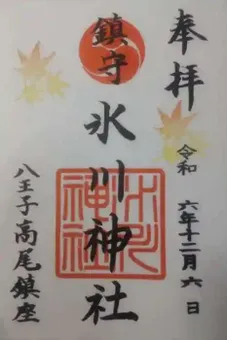 奉拝
令和 六年十二月六日
鎮守
氷川神社
氷川神社
八王子高尾鎮座